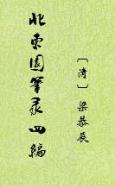 北東園筆录四編
〔清〕梁恭辰